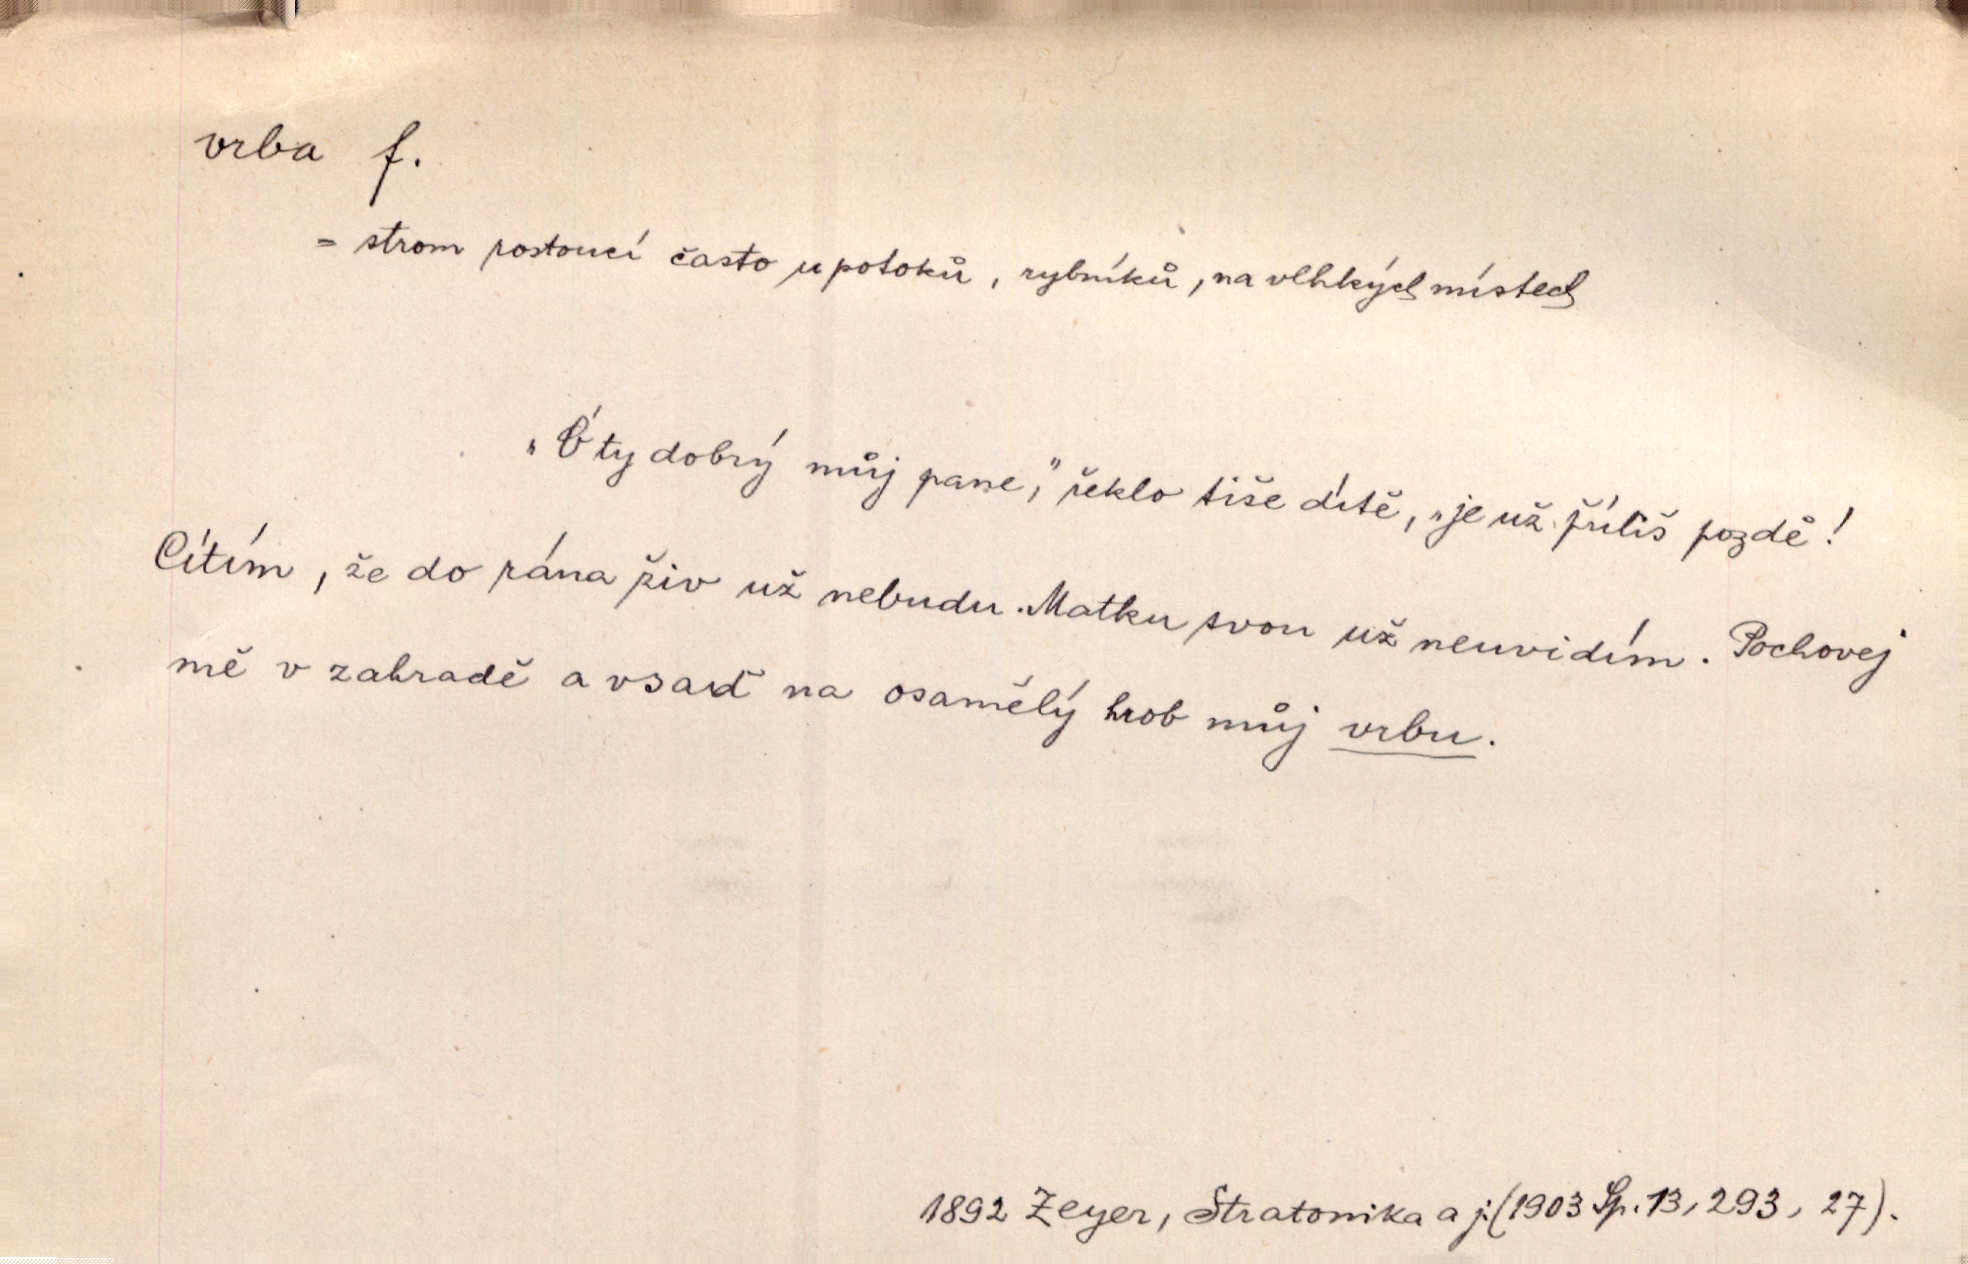 vrba f.
= strom rostoucí často u potoků, rybníků, na vlhkých místech
„Ó ty dobrý můj pane,” řeklo tiše dítě, „je už příliš pozdě!
Cítím, že do rána živ už nebudu. Matku svou už neuvidím. Pochovej
mě v zahradě a vsaď na osamělý hrob můj vrbu.
1892 Zeyer, Stratonika a j. (1903 Sp. 13, 293, 27).